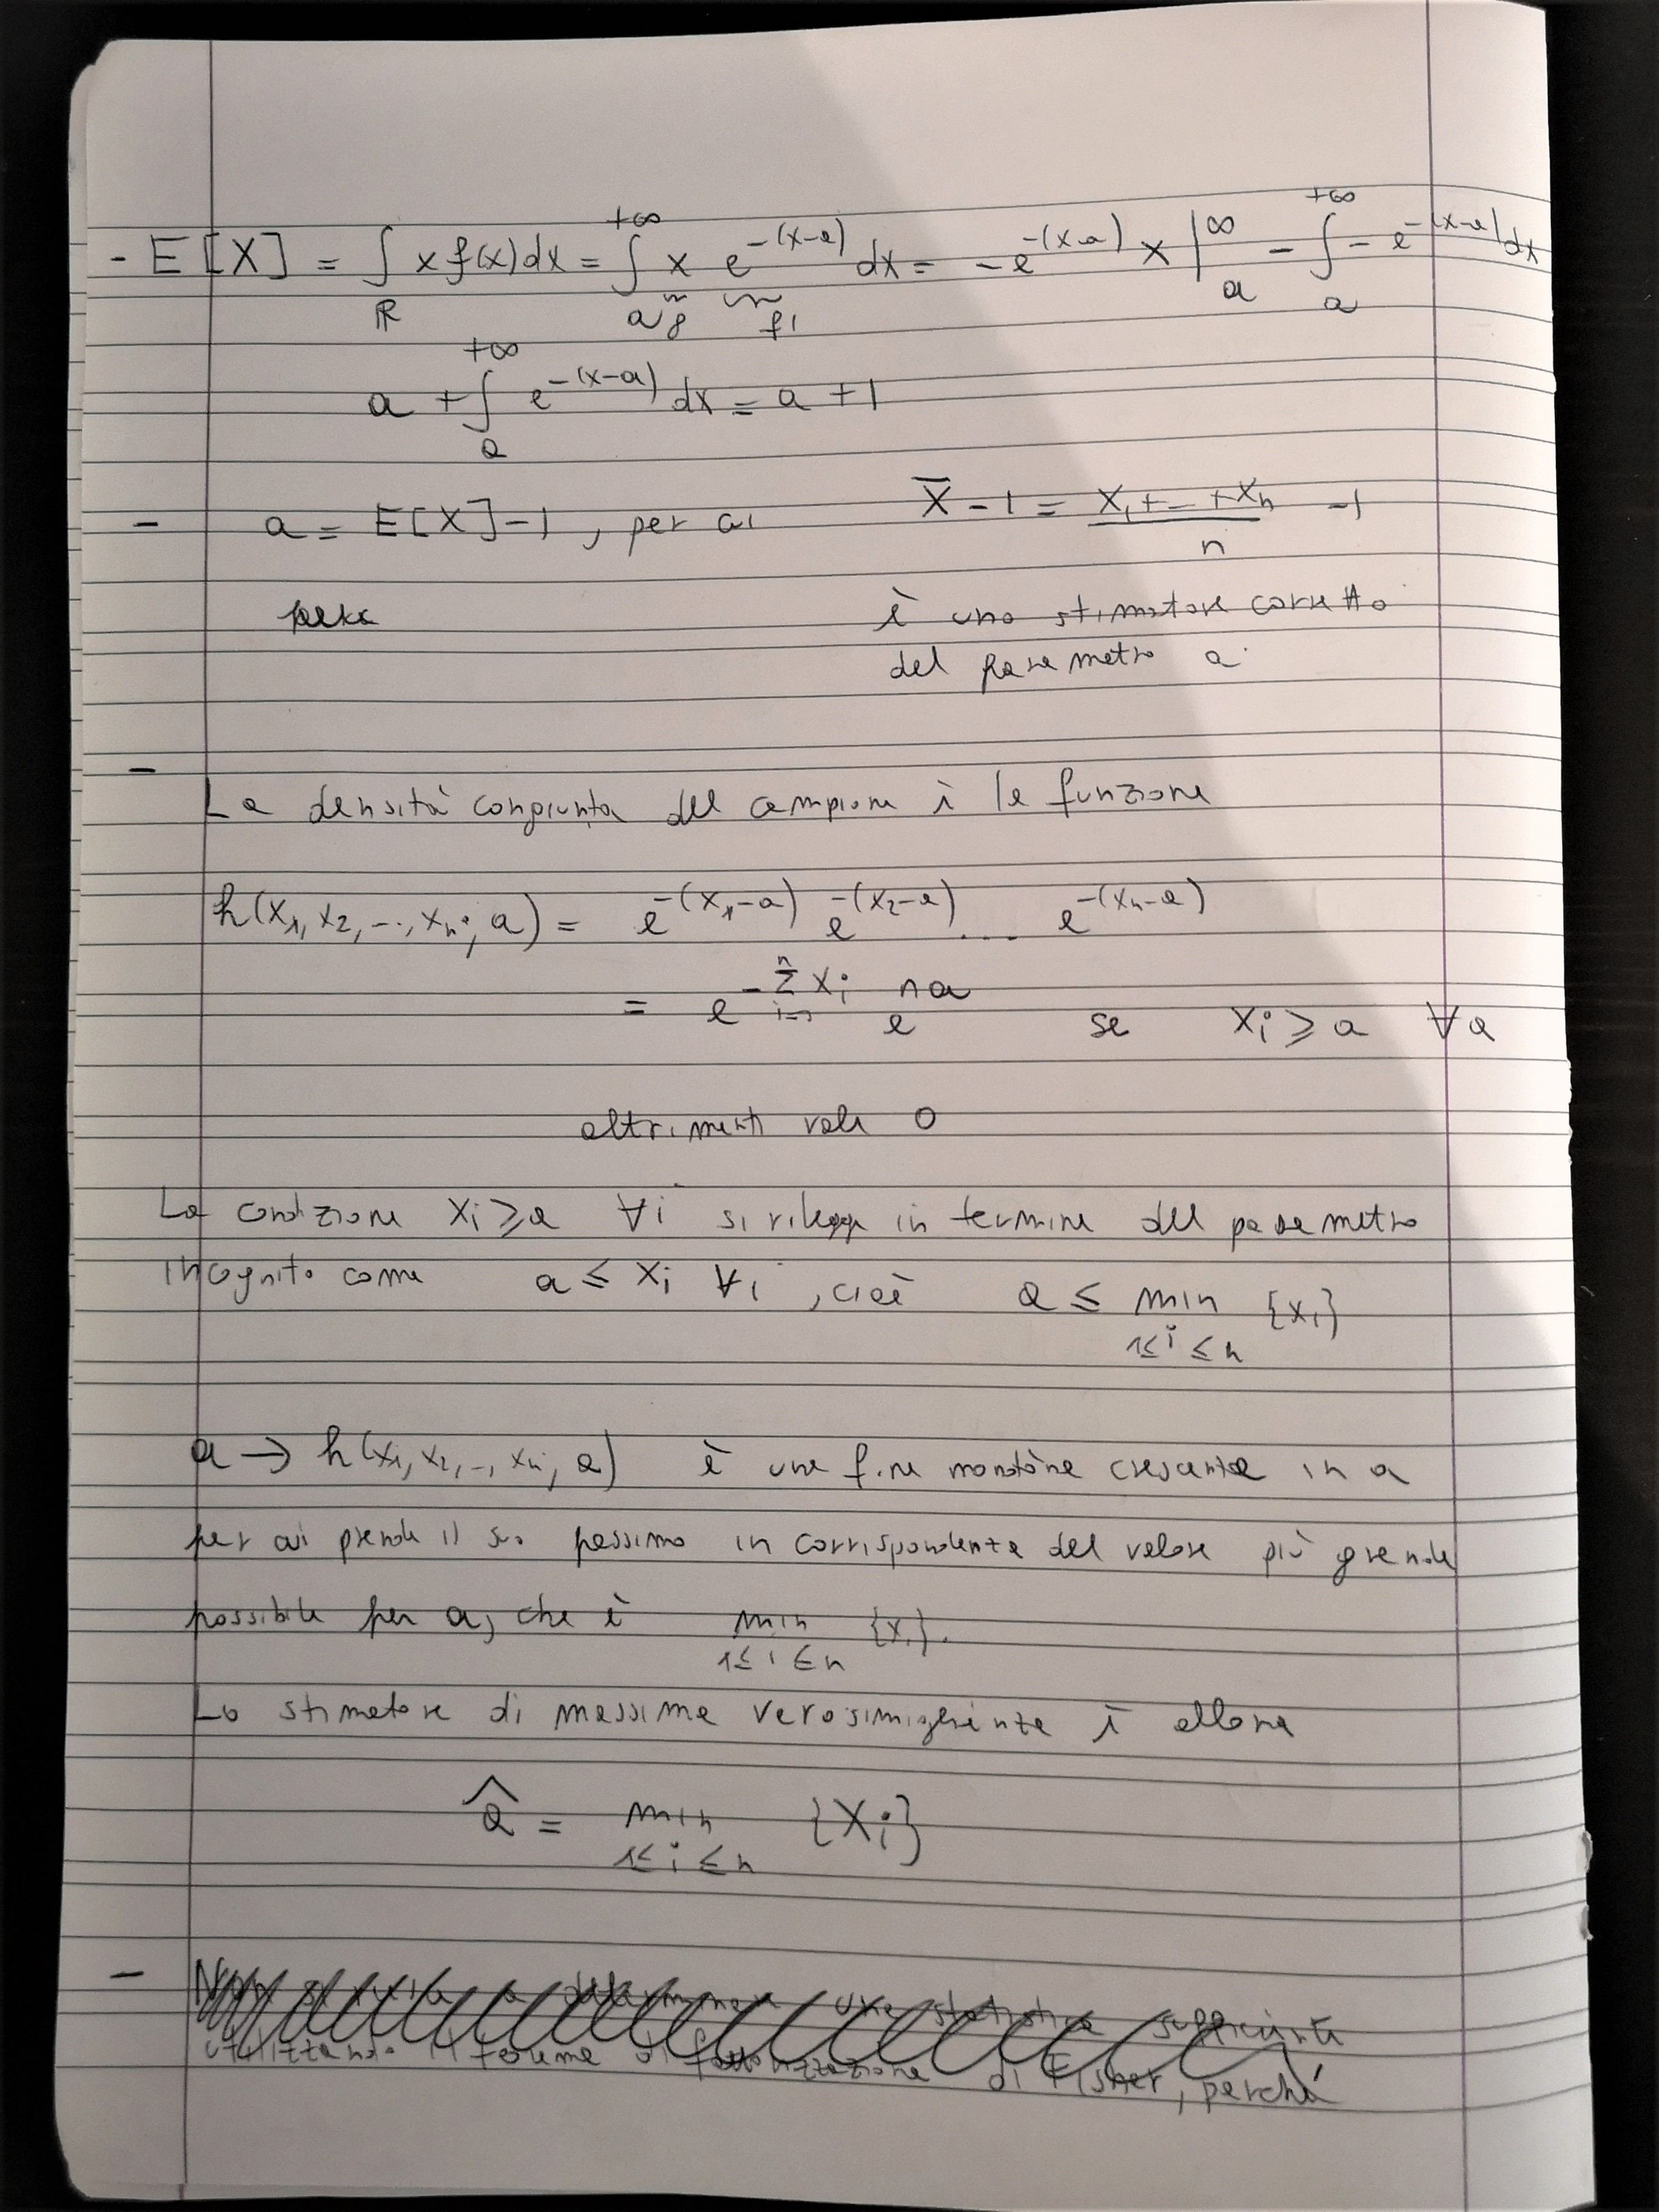 - E[X] = ∫_ℝ x f(x) dx = ∫_a^{+∞} x e^{-(x-a)} dx = -e^{-(x-a)} x |_a^∞ - ∫_a^{+∞} - e^{-(x-a)} dx
g f'
a + ∫_a^{+∞} e^{-(x-a)} dx = a + 1
- a = E[X] - 1, per cui X̄ - 1 = (X₁ + ... + Xₙ)/n - 1
è uno stimatore corretto
del parametro a
-
La densità congiunta del campione è la funzione
h(x₁, x₂, ..., xₙ; a) = e^{-(x₁-a)} e^{-(x₂-a)} .... e^{-(xₙ-a)}
= e^{-∑_{i=1}^n xᵢ} e^{na} se xᵢ ≥ a ∀a
altrimenti vale 0
La condizione xᵢ ≥ a ∀i si rilegge in termine del parametro
incognito come a ≤ xᵢ ∀i, cioè a ≤ min_{1≤i≤n} {xᵢ}
a → h(x₁, x₂, .., xₙ; a) è una f.ne monotòna crescente in a
per cui prende il suo massimo in corrispondenza del valore più grande
possibile per a, che è min_{1≤i≤n} {xᵢ}.
Lo stimatore di massima verosimiglianza è allora
â = min_{1≤i≤n} {Xᵢ}
- Non a determinare una statistica sufficiente
utilizzando il teorema di fattorizzazione di Fisher, perché